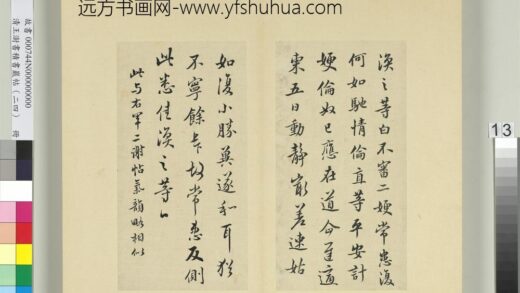 远方书画网-www.yfshuhua.com
故書000744N000000000
清王澍書積書巖帖（二四） 冊
13
渙之等白不審二嫂常患復
何如馳情倫直等平安計
嫂倫奴已應在道今至適
東五日動靜嚴差速姑
如復小勝冀遂和耳猶
不寧餘卡故常患反側
此悉佳渙之等
此与右軍二謝帖氣韻略相似